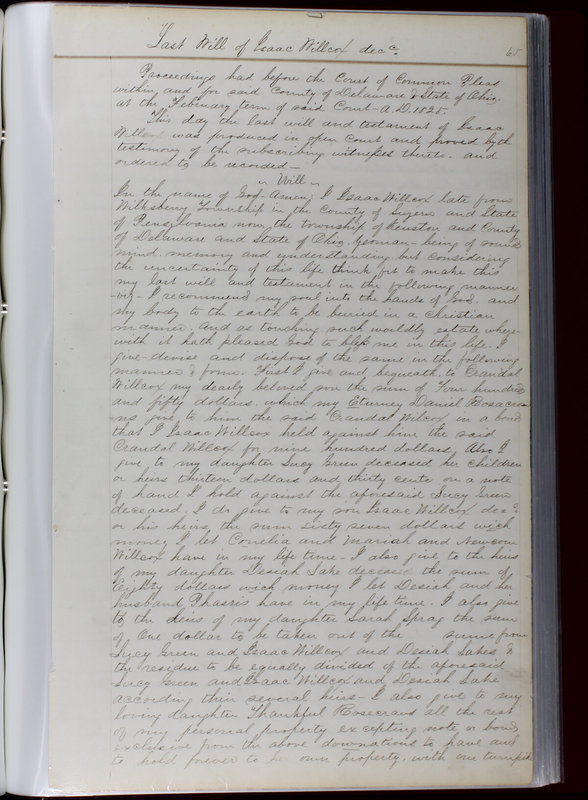 Last Will of Isaac Willcox decc
65
Proceedings had before the Court of Common Pleas
within and for said County of Delaware & State of Ohio.
at the February term of said Court A.D. 1825.
This day the last will and testament of Isaac
Willcox was produced in open Court and proved by the
testimony of the subscribing witnesses thereto. and
ordered to be recorded—
" Will "
In the name of God Amen; I Isaac Willcox late from
Wilksberry Township in the County of Luzern and State
of Pensylvania now, the township of Keuston and County
of Delaware and State of Ohio, yeoman - being of sound
mind. memory and understanding but considering
the uncertainty of this life think fit to make this
my last will and testament in the following manner
-viz- I recommend my soul into the hands of God. and
my body to the earth to be buried in a christian
manner. and as touching such worldly estate where-
with it hath pleased God to bless me in this life. I
give- devise and dispose of the same in the following
manner & form. First I give and bequeath. to Crandal
Willcox my dearly beloved son the sum of Four hundred
and fifty dollars. which my Eturney Daniel Rosacra
-ns give to him the said Crandal Wilcox in a bond
that I Isaac Willsox held against him the said
Crandal Willcox for nine hundred dollars, Also I
give to my daughter Lucy Green deceased her children
or heirs thirteen dollars and thirty cents on a note
of hand I hold against the aforesaid Lucy Green
deceased, I do give to my son Isaac Willcox decd.
or his heirs, the sum sixty seven dollars wich
money I let Cornelia and Mariah and Newcom
Willcox have in my life time - I also give to the heirs
of my daughter Desiah Lake deceased the sum of
Eighty dollars wich money I let Desiah and her
husband Phasris have in my life time. I also give
to the Heirs of my daughter Sarah Sprag the sum
of One dollar to be taken out of the sume from
Lucy Green and Isaac Willcox and Desiah Lakes &
the residue to be equally divided of the aforesaid
Lucy Green and Isaac Willcox and Desiah Lake
according thir several heirs - I also give to my
loving daughter Thankful Rosecrans all the rest
of my personal property excepting note or bond
exclusive from the above downations to have and
to hold forever to her own property. with one turnpike